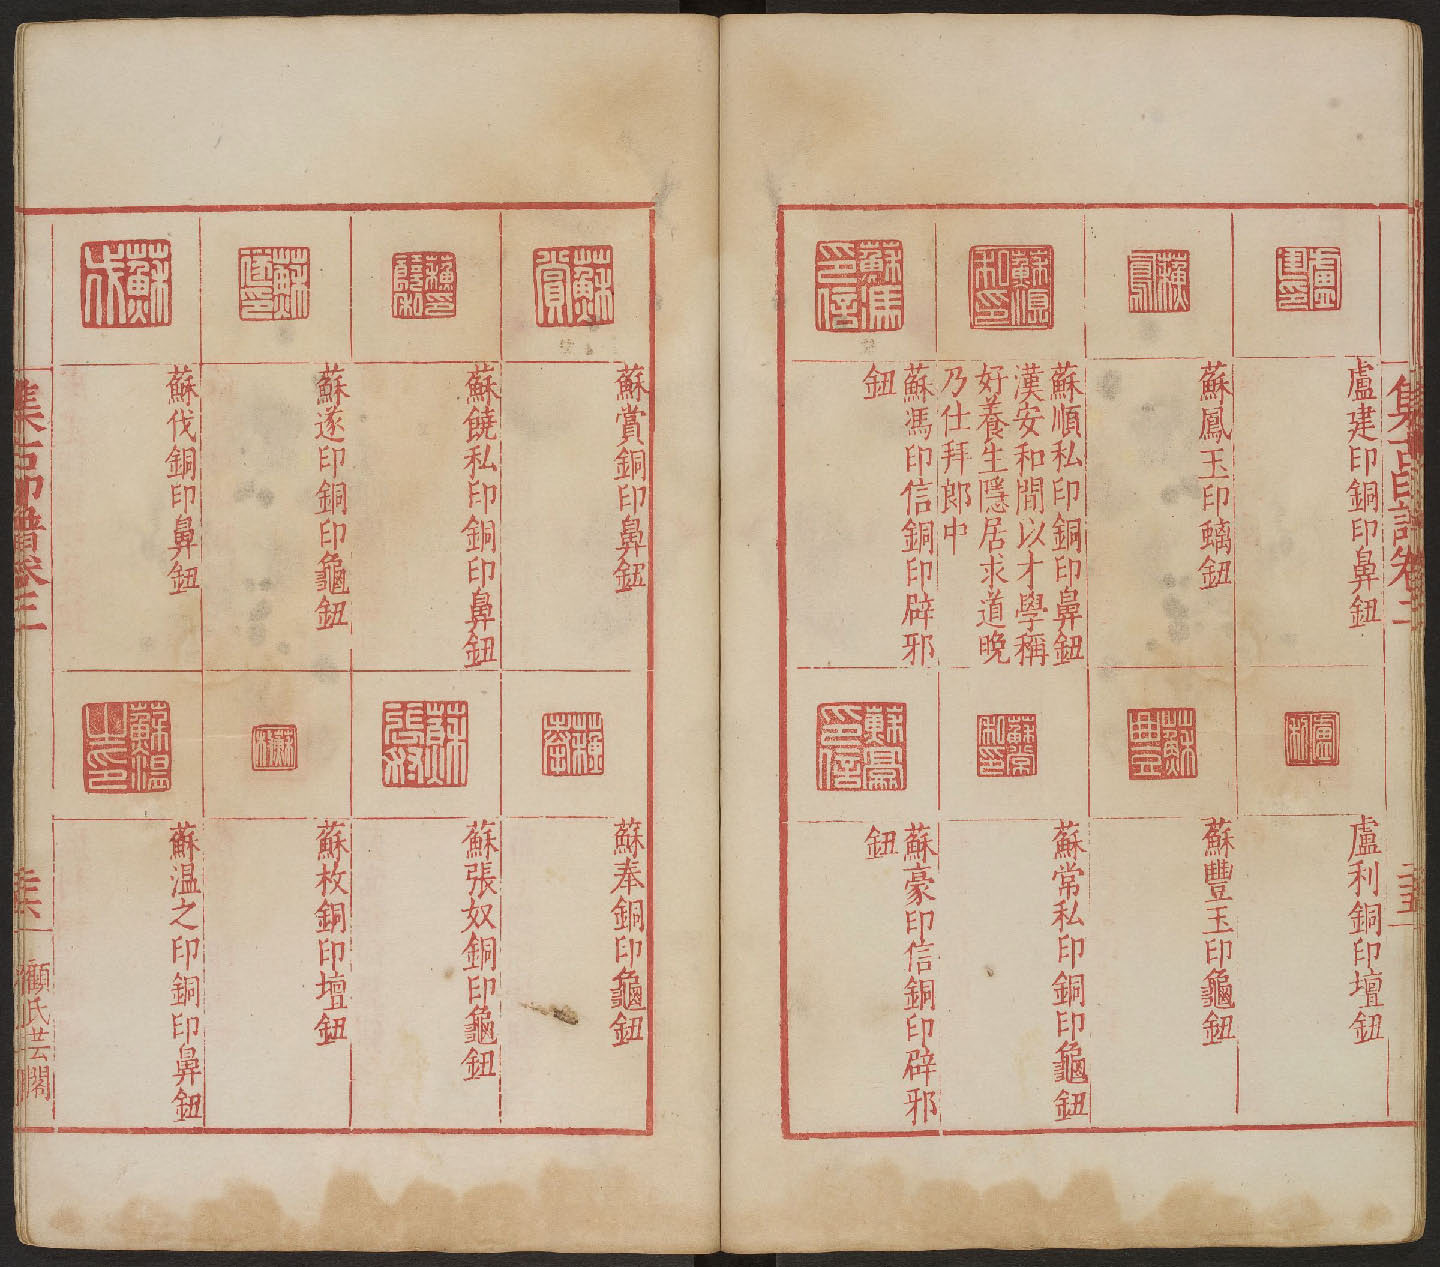 集古印譜卷二
盧建印銅印鼻鈕
蘇鳳玉印螭鈕
蘇順私印銅印鼻鈕
漢安和間以才學稱
好養生隱居求道晚
乃仕拜郎中
蘇馮印信銅印辟邪
鈕
盧利銅印壇鈕
蘇豐玉印龜鈕
蘇常私印銅印龜鈕
蘇豪印信銅印辟邪
鈕
蘇賞銅印鼻鈕
蘇饒私印銅印鼻鈕
蘇遂印銅印龜鈕
蘇伐銅印鼻鈕
蘇奉銅印龜鈕
蘇張奴銅印龜鈕
蘇枚銅印壇鈕
蘇温之印銅印鼻鈕
集古印譜卷三
顧氏芸閣